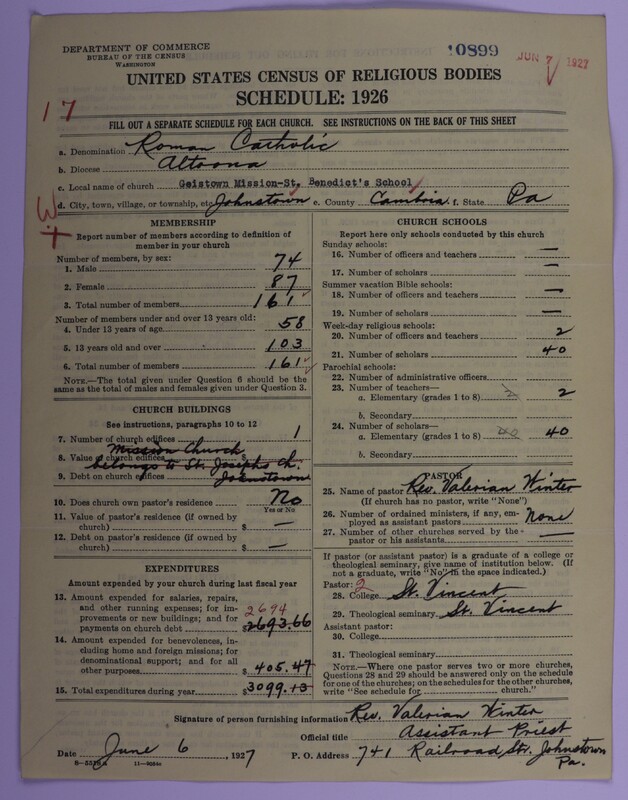 DEPARTMENT OF COMMERCE
BUREAU OF THE CENSUS
WASHINGTON
10899
JUN 7 1927
UNITED STATES CENSUS OF RELIGIOUS BODIES
SCHEDULE: 1926
17
FILL OUT A SEPARATE SCHEDULE FOR EACH CHURCH. SEE INSTRUCTIONS ON THE BACK OF THIS SHEET
a. Denomination Roman Catholic
b. Diocese Altoona
c. Local name of church Geistown Mission-St. Benedict's School
d. City, town, village, or township, etc. Johnstown e. County Cambria f. State Pa
MEMBERSHIP
Report number of members according to definition of
member in your church
Number of members, by sex:
1. Male 74
2. Female 87
3. Total number of members 161
Number of members under and over 13 years old:
4. Under 13 years of age 58
5. 13 years old and over 103
6. Total number of members 161
NOTE.—The total given under Question 6 should be the
same as the total of males and females given under Question 3.
CHURCH BUILDINGS
See instructions, paragraphs 10 to 12
7. Number of church edifices 1
Mission Church
8. Value of church edifices $
belongs to St. Josephs Ch.
9. Debt on church edifices Johnstown
10. Does church own pastor's residence No
Yes or No
11. Value of pastor's residence (if owned by
church) $ —
12. Debt on pastor's residence (if owned by
church) $ —
EXPENDITURES
Amount expended by your church during last fiscal year
13. Amount expended for salaries, repairs,
and other running expenses; for im-
provements or new buildings; and for
2694
payments on church debt $2693.66
14. Amount expended for benevolences, in-
cluding home and foreign missions; for
denominational support; and for all
other purposes $405.47
15. Total expenditures during year $3099.13
CHURCH SCHOOLS
Report here only schools conducted by this church
Sunday schools:
16. Number of officers and teachers —
17. Number of scholars —
Summer vacation Bible schools:
18. Number of officers and teachers —
19. Number of scholars —
Week-day religious schools:
20. Number of officers and teachers 2
21. Number of scholars 40
Parochial schools:
22. Number of administrative officers
23. Number of teachers—
a. Elementary (grades 1 to 8) 2 2
b. Secondary
24. Number of scholars—
a. Elementary (grades 1 to 8) 40 40
b. Secondary
PASTOR
25. Name of pastor Rev. Valerian Winter
(If church has no pastor, write "None")
26. Number of ordained ministers, if any, em-
ployed as assistant pastors None
27. Number of other churches served by the
pastor or his assistants —
If pastor (or assistant pastor) is a graduate of a college or
theological seminary, give name of institution below. (If
not a graduate, write "No" in the space indicated.)
Pastor: 2
28. College St. Vincent
29. Theological seminary St. Vincent
Assistant pastor:
30. College
31. Theological seminary
NOTE.—Where one pastor serves two or more churches,
Questions 28 and 29 should be answered only on the schedule
for one of the churches; on the schedules for the other churches,
write "See schedule for church."
Signature of person furnishing information Rev. Valerian Winter
Official title Assistant Priest
Date June 6, 1927 P. O. Address 741 Railroad St. Johnstown
Pa.